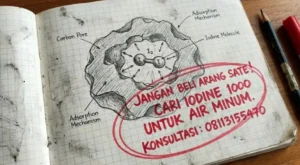 Adsorption
Mechanism
Carbon Pore
Iodine Molecule
I₂
Adsorption
Mechanism
JANGAN BELI ARANG SATE!
CARI IODINE 1000
UNTUK AIR MINUM.
KONSULTASI: 08113155470